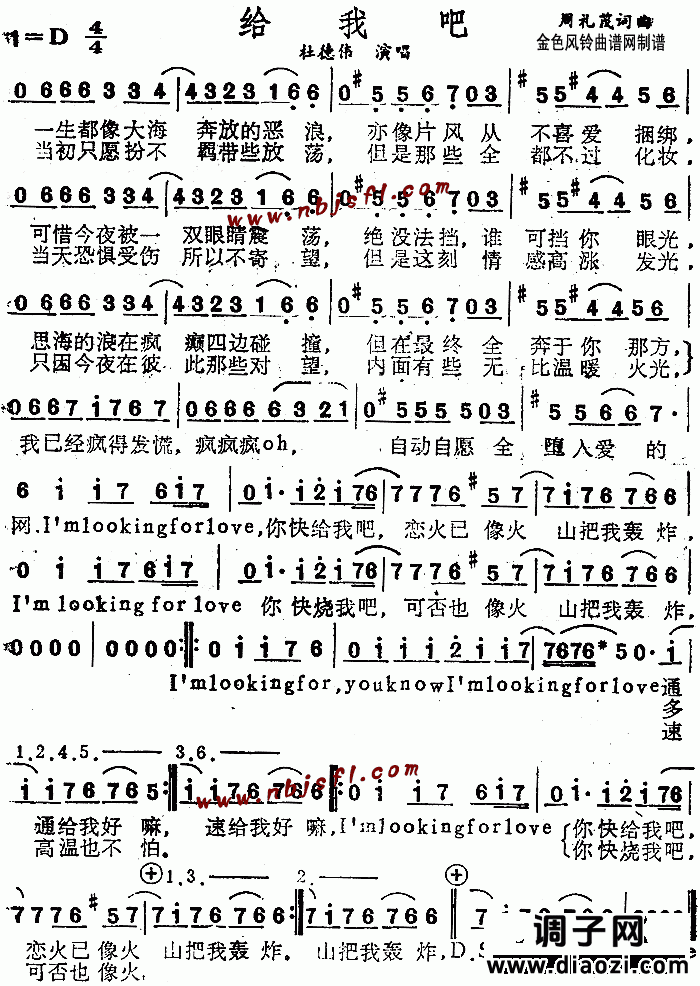 给我吧
周礼茂词曲
1=D 4/4
杜德伟 演唱
金色风铃曲谱网制谱
0 666 334 | 4323 166 | 0 #55 6 703 | 55#44 56
一生都像大海 奔放的恶浪, 亦像片风从 不喜爱 捆绑,
当初只愿扮不 羁带些放荡, 但是那些全 都不过 化妆,
0 666 334 | 4323 166 | 0 #55 6 703 | 55#44 56
www.nbjsfl.com
可惜今夜被一 双眼睛震荡, 绝没法挡,谁 可挡你 眼光,
当天恐惧受伤 所以不寄望, 但是这刻情 感高涨 发光,
0 666 334 | 4323 166 | 0 #55 6 703 | 55#4 456
思海的浪在疯 癫四边碰撞, 但在最终全 奔于你 那方,
只因今夜在彼 此那些对望, 内面有些无 比温暖 火光,
0667 i767 | 0666 6321 | 0 #555 503 | #5 566 7·
我已经疯得发慌,疯疯疯oh, 自动自愿全 堕入爱的
6 i i7 6i7 | 0 i· i2i76 | 7776 #57 | 7i76 776
网.I'mlookingforlove,你快给我吧, 恋火已像火 山把我轰炸,
0 i i7 6i7 | 0 i· i2i76 | 7776 #57 | 7i76 776
I'm looking for love 你快烧我吧, 可否也像火 山把我轰炸,
0000 | 0000 :‖: 0 i i76 | 0 i i i 2 i i7 | 7676* 50· i
I'mlookingfor,youknowI'mlookingforlove通
多
速
1.2.4.5. 3.6.
ii76 765 :‖ ii76 766 :‖: 0 i i7 6i7 | 0 i· i2i76
www.nbjsfl.com
通给我好嘛, 速给我好嘛,I'mlookingforlove 你快给我吧,
高温也不怕. 你快烧我吧,
1.3. 2.
7776 #57 | 7i76 766 :‖ 7i76 766
恋火已像火 山把我轰炸.山把我轰炸,D.S
可否也像火,
调子网
www.diaozi.com